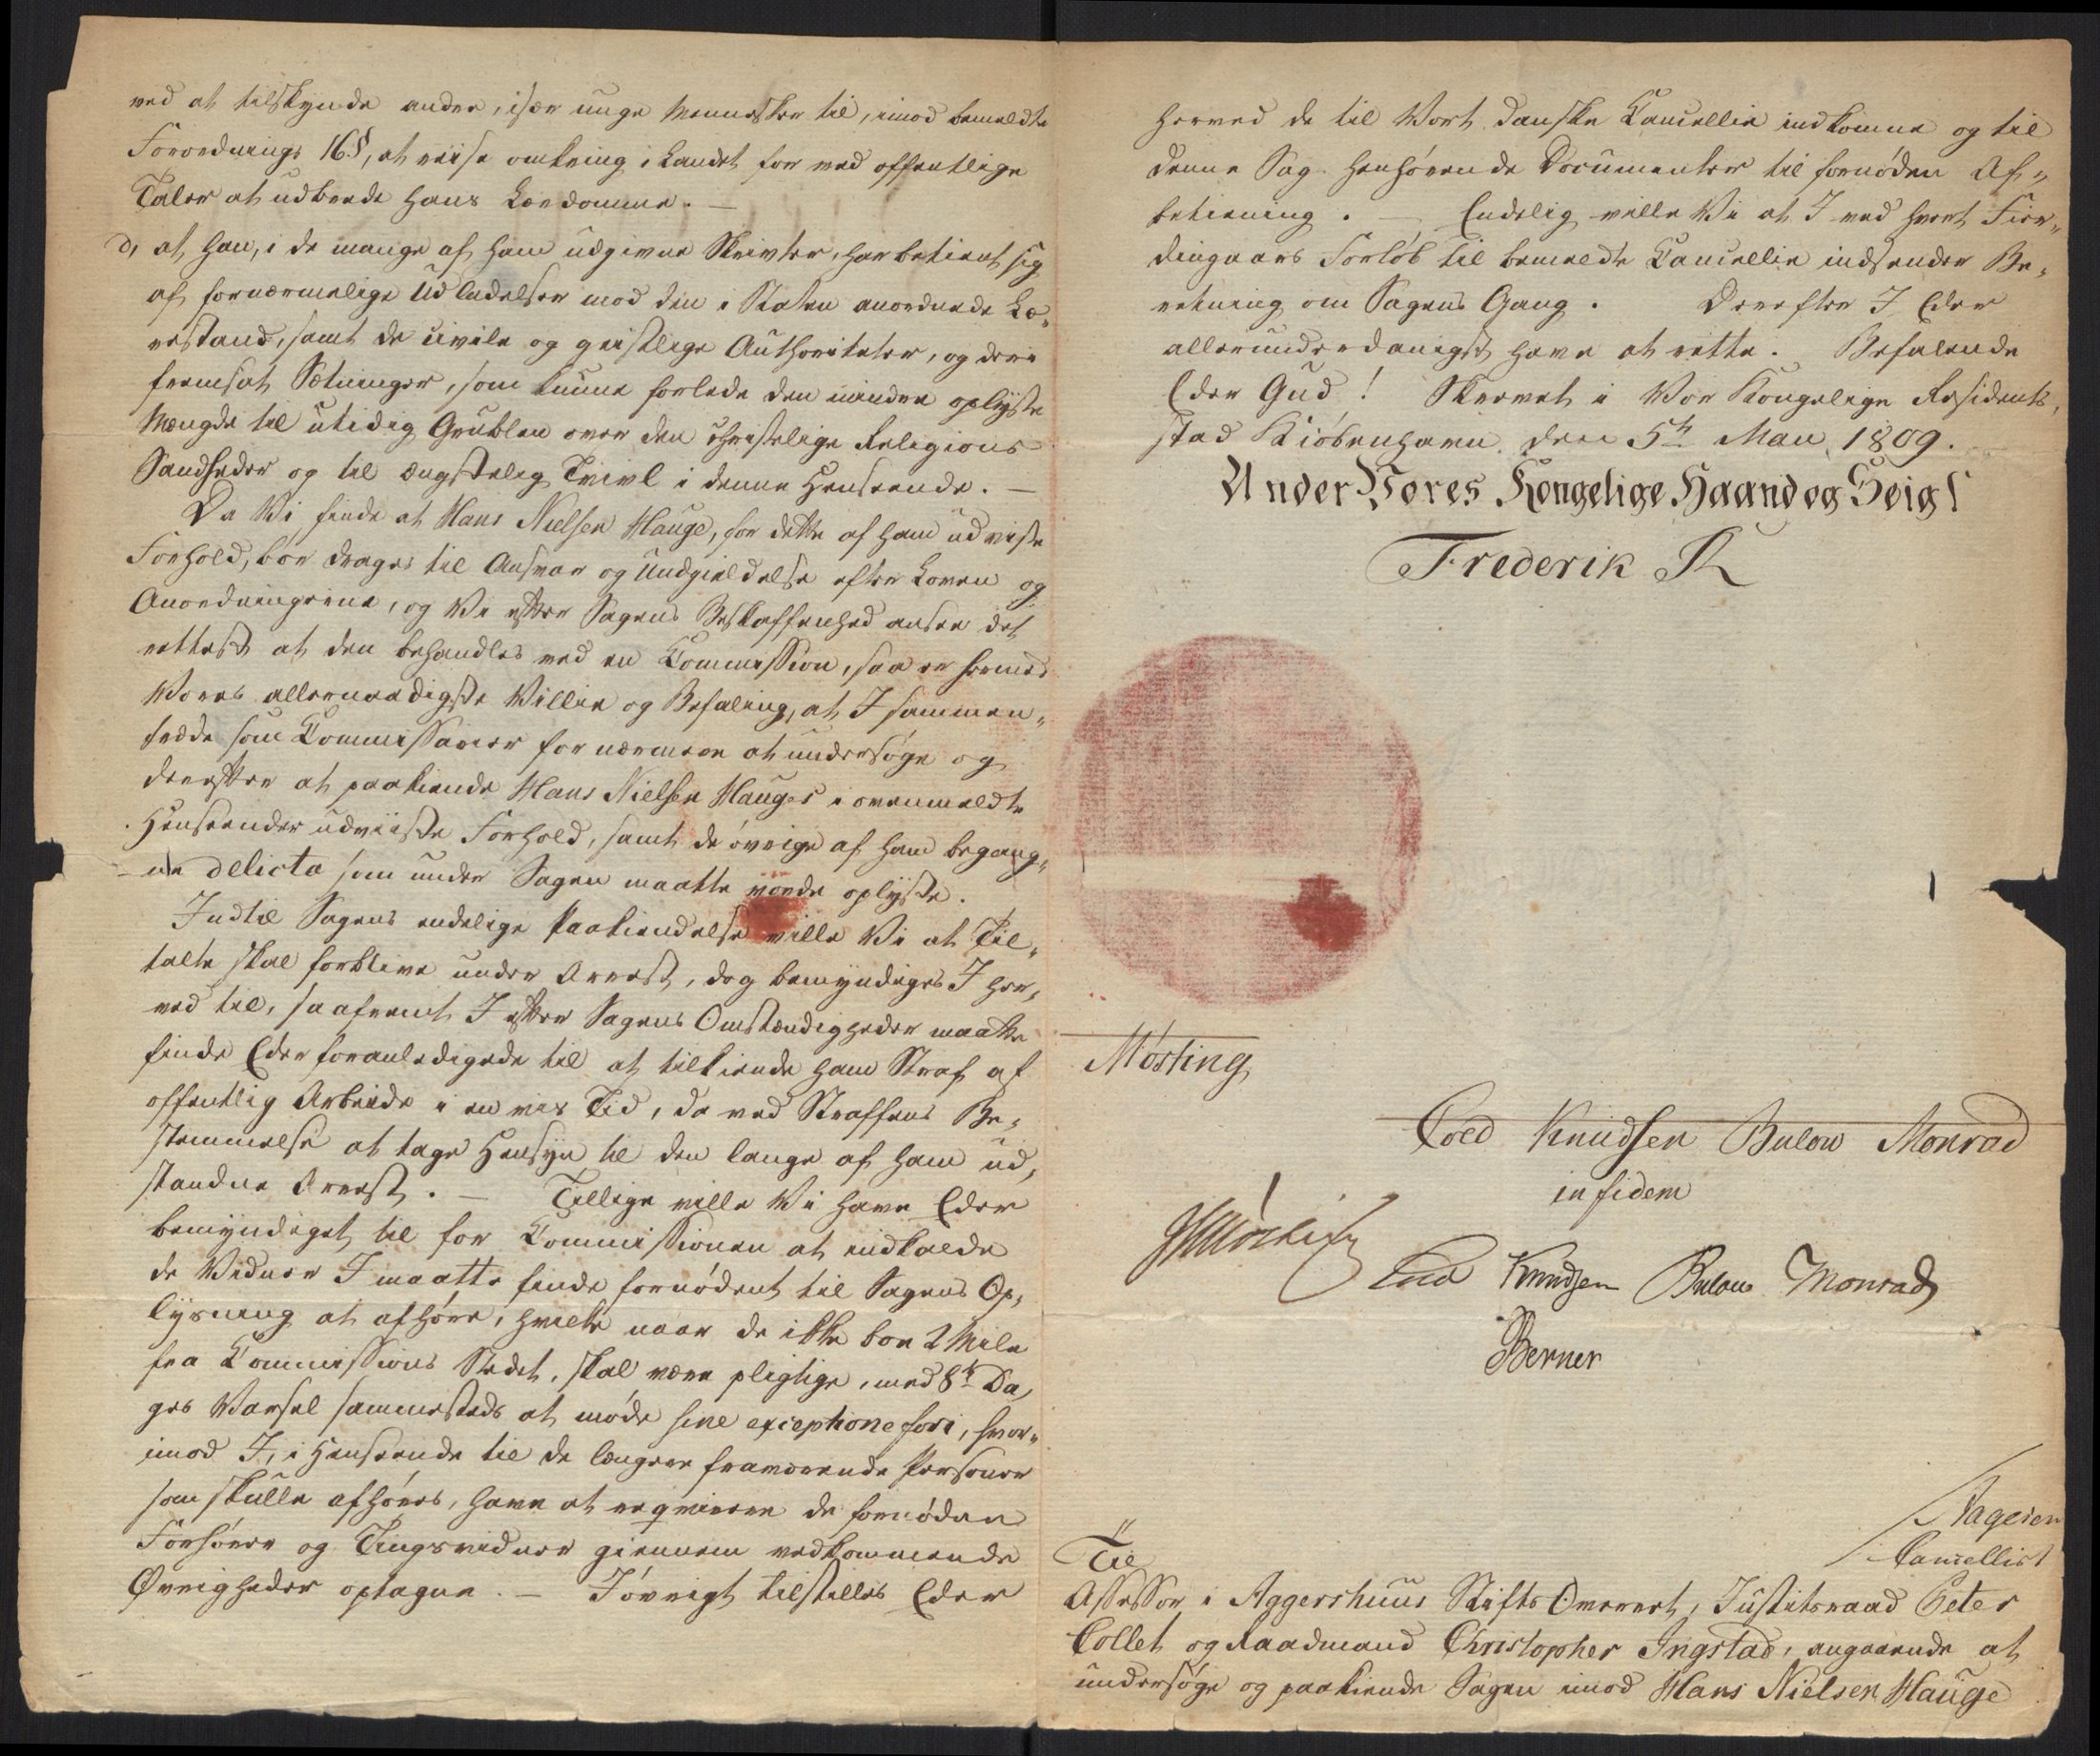 ved at tilskynde andre, især unge Mennesker til, imod bemeldte
Forordnings 16 §, at reise omkring i Landet for ved offentlige
Taler at udbrede hans Lærdomme. —
d, at han, i de mange af ham udgivne Skrivter, har betient sig
af fornærmelige Udladelser mod den i Staten anordnede Læ„
restand, samt de civile og geistlige Authoriteter, og deri
fremsat Sætninger, som kunne forlede den mindre oplyste
Mængde til utidig Grublen over den christelige Religions
Sandheder og til ængstelig Tvivl i denne Henseende. —
Da Vi finde at Hans Nielsen Hauge, for dette af ham udviste
Forhold, bør drages til Ansvar og Undgieldelse efter Loven og
Anordningerne, og Vi efter Sagens Beskaffenhed ansee det
rettest at den behandles ved en Commission, saa er hermed
Vores allernaadigste Villie og Befaling, at I sammen„
træde som Commissairer for nærmere at undersøge og
derefter at paakiende Hans Nielsen Hauges i ovenmeldte
Henseender udviiste Forhold, samt de øvrige af ham begang„
ne delicta som under Sagen maatte vorde oplyste.
Indtil Sagens endelige Paakiendelse ville Vi at Til„
talte skal forblive under Arrest, dog bemyndiges I her„
ved til, saafremt I efter Sagens Omstændigheder maatte
finde Eder foranledigede til at tilkiende ham Straf af
offentlig Arbeide i en vis Tid, da ved Straffens Be„
stemmelse at tage Hensyn til den lange af ham ud„
standne Arrest. — Tillige ville Vi have Eder
bemyndiget til for Commissionen at indkalde
de Vidner I maatte finde fornødent til Sagens Op„
lysning at afhøre, hvilke naar de ikke boe 2 Mile
fra Commissions Stedet, skal være pligtige, med 8te Da„
ges Varsel sammesteds at møde sine exceptione fori, hvor„
imod I, i Henseende til de længere fraværende Personer
som skulle afhøres, have at reqvirere de fornødne
Forhører og Tingsvidner giennem vedkommende
Øvrigheder optagne. — Iøvrigt tilstilles Eder
herved de til Vort danske Cancellie indkomne og til
denne Sag henhørende Documenter til fornøden Af„
betiening. — Endelig ville Vi at I ved hvert Fier„
dingaars Forløb til bemeldte Cancellie indsender Be„
retning om Sagens Gang. Derefter I Eder
allerunderdanigst have at rette. Befalende
Eder Gud! Skrevet i Vor Kongelige Residents„
stad Kiøbenhavn den 5te Mai 1809.
Under Vores Kongelige Haand og Seigl
Frederik R
Møsting
Cold Knudsen Bulow Monrad
in fidem
JMøsting Cold Knudsen Bulow Monrad
Berner
Aagesen
Cancellist
Til
Assessor i Aggershuus Stifts Overret, Justitsraad Peter
Collet og Raadmand Christopher Ingstad, angaaende at
undersøge og paakiende Sagen imod Hans Nielsen Hauge